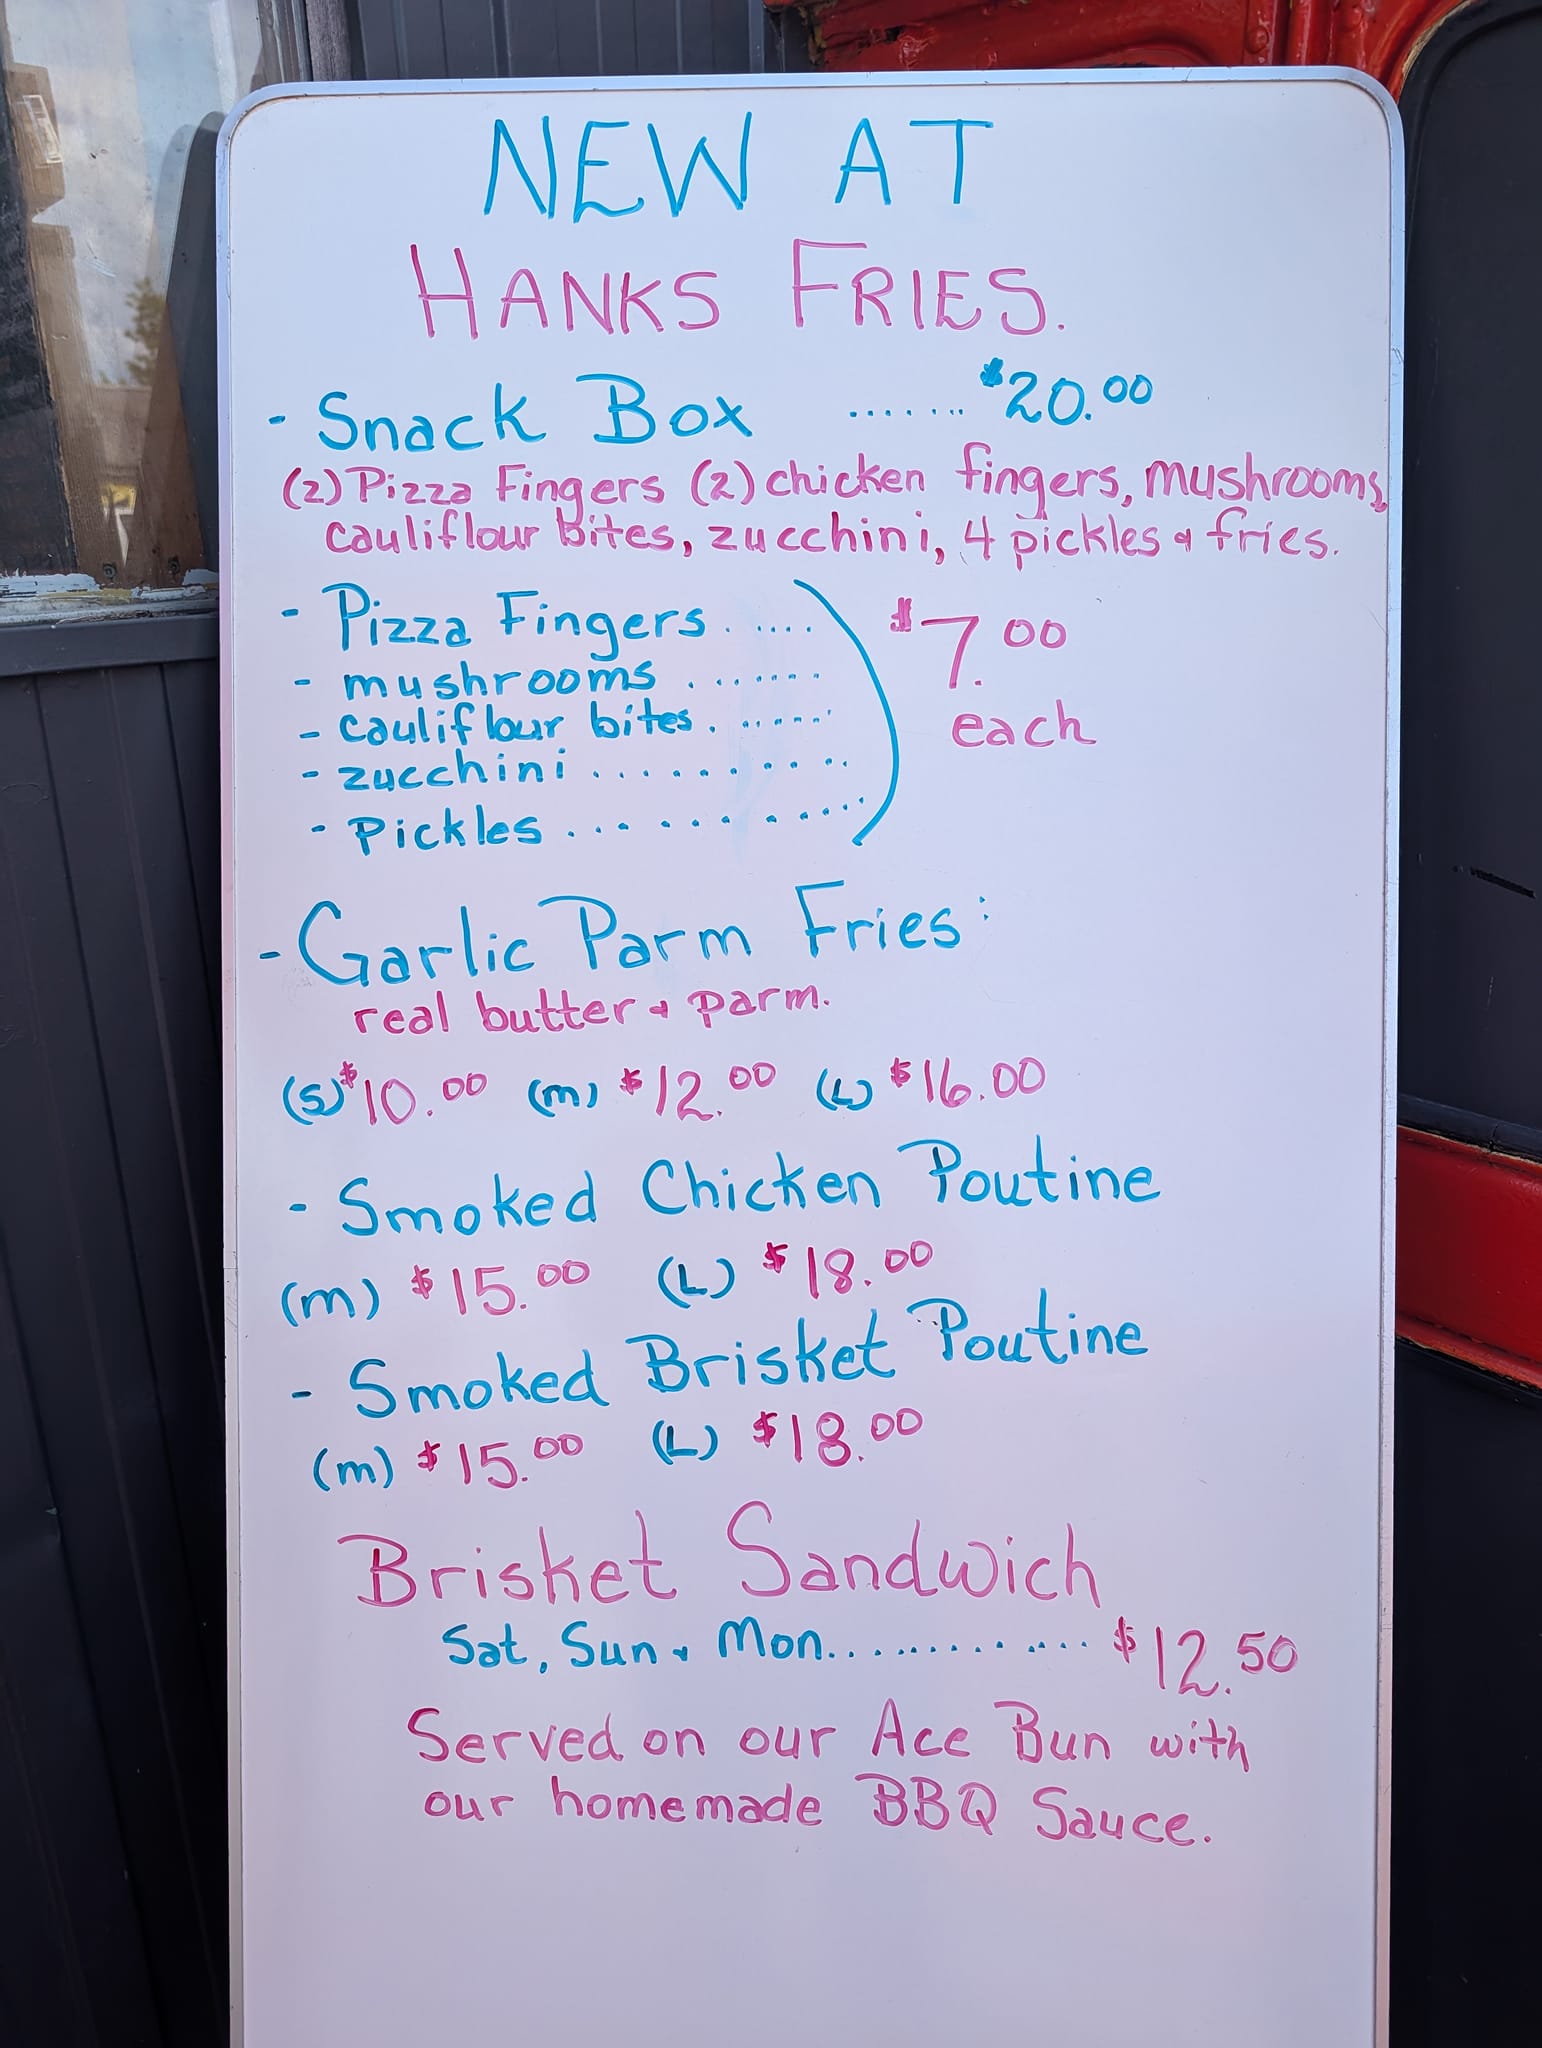 NEW AT
HANKS FRIES.
- Snack Box ....... $20.00
(2) Pizza Fingers (2) chicken fingers, mushrooms,
cauliflour bites, zucchini, 4 pickles & fries.
- Pizza Fingers ..... $7.00
- mushrooms ....... each
- cauliflour bites. .....
- zucchini ..........
- Pickles ..........
- Garlic Parm Fries:
real butter & parm.
(S) $10.00 (m) $12.00 (L) $16.00
- Smoked Chicken Poutine
(m) $15.00 (L) $18.00
- Smoked Brisket Poutine
(m) $15.00 (L) $18.00
Brisket Sandwich
Sat, Sun & Mon............ $12.50
Served on our Ace Bun with
our homemade BBQ Sauce.